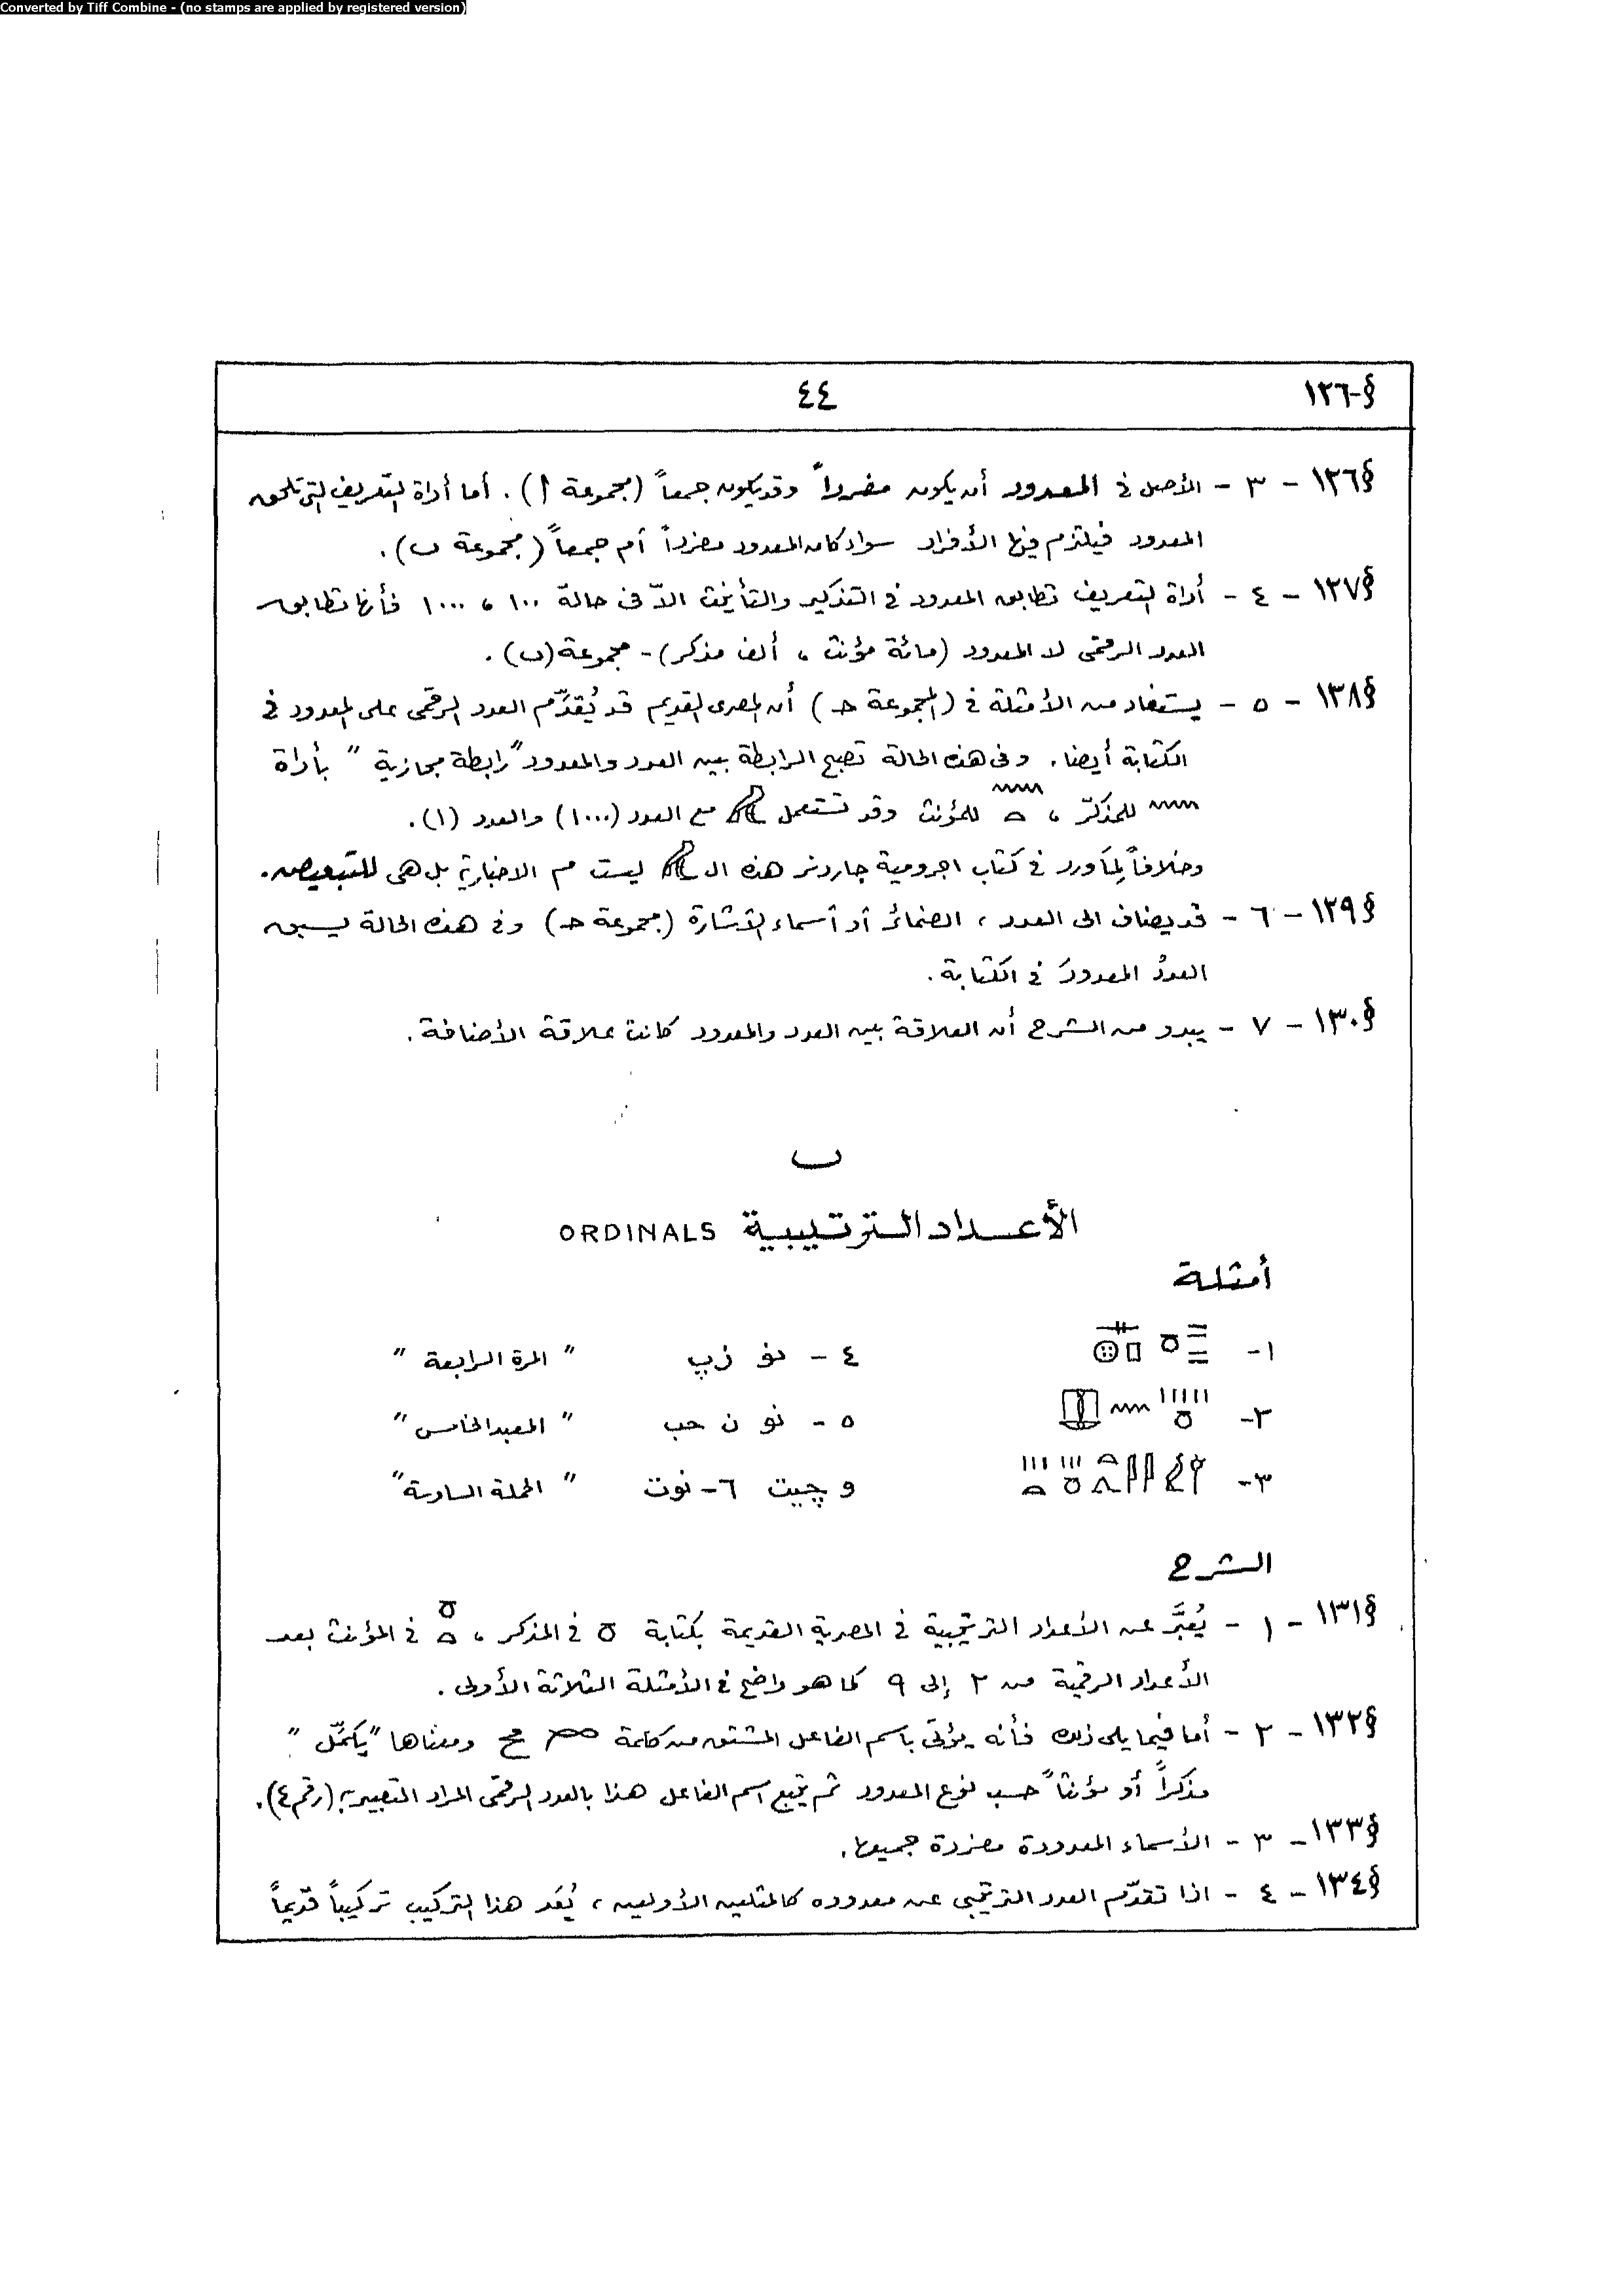 Converted by Tiff Combine - (no stamps are applied by registered version)
§-١٢٦
٤٤
§١٢٦ - ٣ - الأصل فى المعدود أن يكون مفرداً وقد يكون جمعاً (مجموعة أ). أما أداة التعريف التى تلحق
المعدود فيلتزم فيها الأفراد سواء كان المعدود مفرداً أم جمعاً (مجموعة ب).
§١٢٧ - ٤ - أداة التعريف تطابق المعدود فى التذكير والتأنيث الاّ فى حالة ١٠٠ ، ١٠٠٠ فأنها تطابق
العدد الرقمى لا المعدود (مائة مؤنث ، ألف مذكر) - مجموعة (ب).
§١٣٨ - ٥ - يستفاد من الأمثلة فى (المجموعة حـ) أن المصرى القديم قد يُقدّم العدد الرقمى على المعدود فى
الكتابة أيضا. وفى هذه الحالة تصبح الرابطة بين العدد والمعدود "رابطة مجازية" بأداة
للمذكّر ، للمؤنث وقد تستعمل مع العدد (١٠٠٠) والعدد (١).
وخلافاً لِمَا ورد فى كتاب اجرومية جاردنر هذه الـ ليست م الاخبارية بل هى للتبعيض.
§١٢٩ - ٦ - قد يضاف الى العدد ، الضمائر أو أسماء الأشارة (مجموعة حـ) وفى هذه الحالة يسبق
العددُ المعدودَ فى الكتابة.
§١٣٠ - ٧ - يبدو من الشرح أن العلاقة بين العدد والمعدود كانت علاقة الأضافة.
ب
الأعداد الترتيبية ORDINALS
أمثلة
١- ٤ - نو زپ " المرة الرابعة "
٢- ٥ - نو ن حب " المعبد الخامس "
٣- وچيت ٦- نوت " الحملة السادسة "
الشرح
§١٣١ - ١ - يُعبَّر عن الأعداد الترتيبية فى المصرية القديمة بكتابة فى المذكر ، فى المؤنث بعد
الأعداد الرقمية من ٢ إلى ٩ كما هو واضح فى الأمثلة الثلاثة الأولى.
§١٣٢ - ٢ - أما فيما يلى ذلك فأنه يؤتى باسم الفاعل المشتق من كلمة مح ومعناها "يكمّل"
مذكراً أو مؤنثاً حسب نوع المعدود ثم يتبع اسم الفاعل هذا بالعدد الرقمى المراد التعبير به (رقم ٤).
§١٣٣ - ٣ - الأسماء المعدودة مفردة جميعها.
§١٣٤ - ٤ - اذا تقدّم العدد الترتيبى عن معدوده كالمثلين الأولين ، يُعَد هذا التركيب تركيباً قديماً